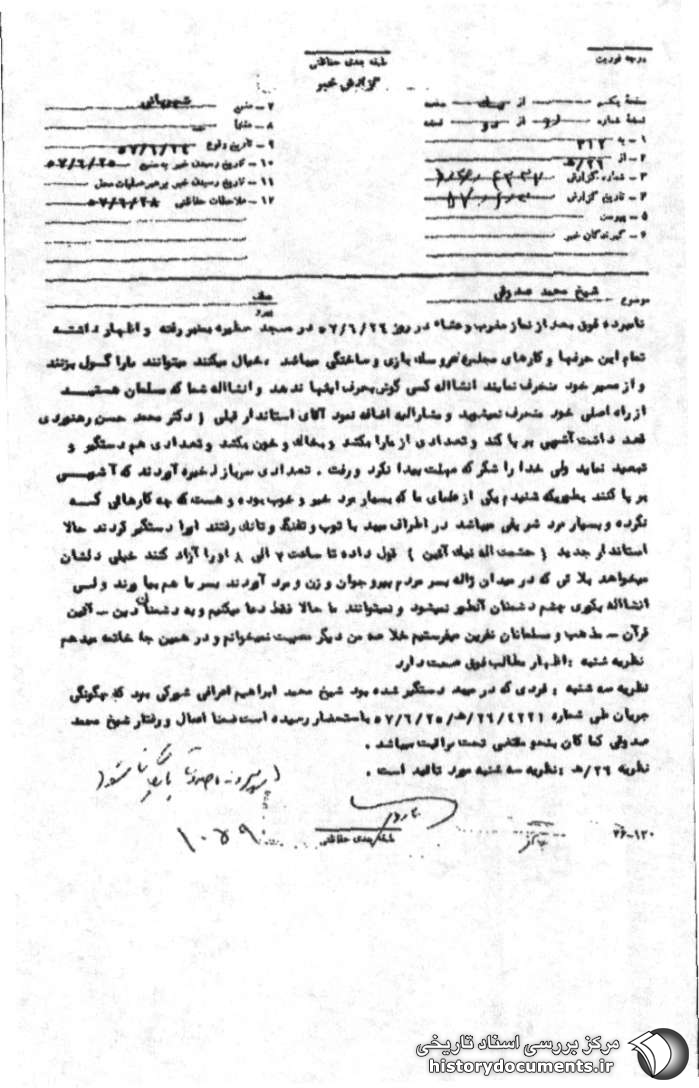 درجه فوریت
طبقه بندی حفاظتی
گزارش خبر
صفحه یکم از یک صفحه
نسخه شماره از دو نسخه
۱ - به ۳۱۲
۲ - از ۲۶/ه‍
۳ - شماره گزارش
۴ - تاریخ گزارش
۵ - پیوست
۶ - گیرندگان خبر
۷ - منبع شهربانی
۸ - منشأ
۹ - تاریخ وقوع ۵۷/۶/۲۴
۱۰ - تاریخ رسیدن خبر به منبع ۵۷/۶/۲۵
۱۱ - تاریخ رسیدن خبر برهبر عملیات محل
۱۲ - ملاحظات حفاظتی ۵۷/۶/۲۸
موضوع شیخ محمد صدوقی
عطف
پیرو
نامبرده فوق بعد از نماز مغرب و عشاء در روز ۵۷/۶/۲۴ در مسجد حظیره بمنبر رفته و اظهار داشته
تمام این حرفها و کارهای مجلس عروسک بازی و ساختگی میباشد . خیال میکنند میتوانند ما را گول بزنند
و از مسیر خود منحرف نمایند انشااله کسی گوش بحرف اینها ندهد و انشااله شما که مسلمان هستید
از راه اصلی خود منحرف نمیشوید و مشارالیه اضافه نمود آقای استاندار قبلی ( دکتر محمد حسن رهنوردی
قصد داشت آشوبی بر پا کند و تعدادی از ما را بکشد و بخاک و خون بکشد و تعدادی هم دستگیر و
تبعید نماید ولی خدا را شکر که مهلت پیدا نکرد و رفت . تعدادی سرباز ذخیره آوردند که آشوبی
بر پا کنند بطوریکه شنیدم یکی از علمای ما که بسیار مرد خیر و خوب بوده و هست که چه کارهائی که
نکرده و بسیار مرد شریفی میباشد در اطراف میبد با توپ و تفنگ و تانک رفتند اورا دستگیر کردند حالا
استاندار جدید ( حشمت اله نیک آئین ) قول داده تا ساعت ۷ الی ۸ اورا آزاد کنند خیلی دلشان
میخواهد بلائی که در میدان ژاله بسر مردم پیر و جوان و زن و مرد آوردند بسر ما هم بیاورند ولی
انشااله بکوری چشم دشمنان آنطور نمیشود و نمیتوانند ما حالا فقط دعا میکنیم و به دشمنان دین - آئین
قرآن - مذهب و مسلمانان نفرین میفرستیم خلاصه من دیگر مصیبت نمیخوانم و در همین جا خاتمه میدهم
نظریه شنبه : اظهار مطالب فوق صحت دارد
نظریه سه شنبه : فردی که در میبد دستگیر شده بود شیخ محمد ابراهیم اعرافی شورکی بود که چگونگی
جریان طی شماره ۲۶/۴۲۲۱/ه‍ - ۵۷/۶/۲۵ باستحضار رسیده است ضمنا اعمال و رفتار شیخ محمد
صدوقی کما کان بنحو مقتضی تحت مراقبت میباشد .
نظریه ۲۶/ه‍ : نظریه سه شنبه مورد تائید است .
طبقه بندی حفاظتی
۱۰۵۹
۲۶-۱۲۰
مرکز بررسی اسناد تاریخی
historydocuments.ir